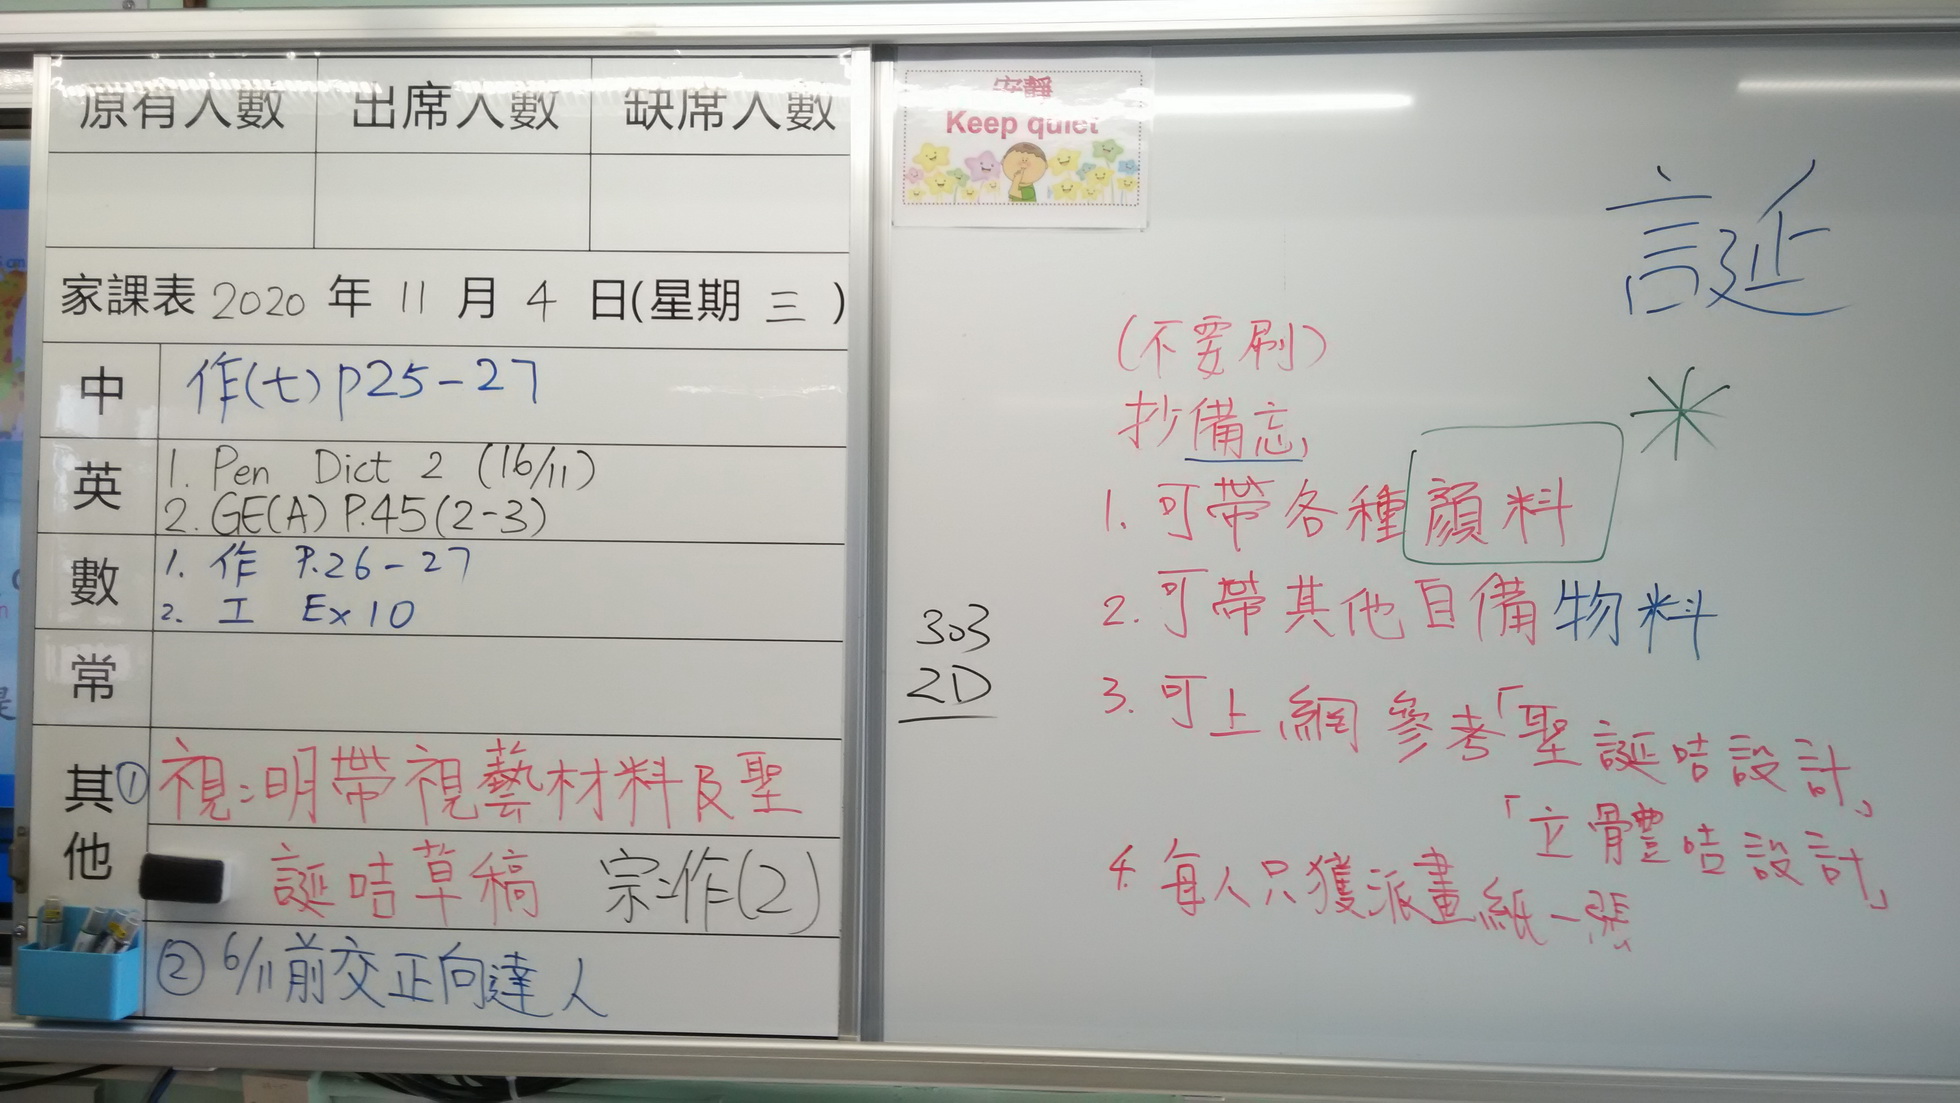 原有人數 出席人數 缺席人數
家課表 2020 年 11 月 4 日(星期 三 )
中 作(七) p25-27
英 1. Pen Dict 2 (16/11)
2. GE(A) P.45(2-3)
數 1. 作 P.26-27
2. 工 Ex 10
常
其他 ① 視:明帶視藝材料及聖
誕咭草稿 宗:作(2)
② 6/11前交正向達人
安靜
Keep quiet
誕
(不要刷)
抄備忘
1. 可帶各種顏料
2. 可帶其他自備物料
3. 可上網參考「聖誕咭設計」
「立體咭設計」
4. 每人只獲派畫紙一張
303
2D